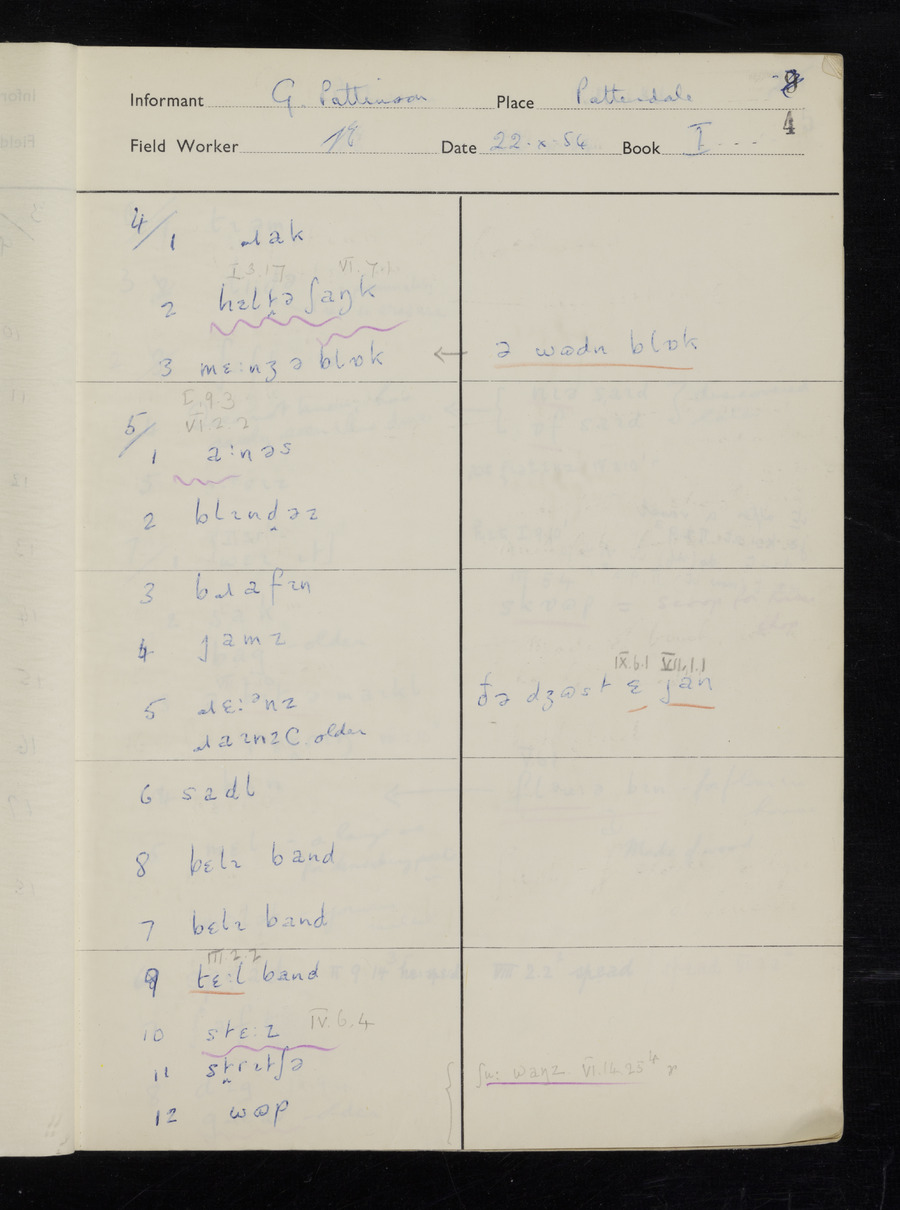 Informant G. Pattinson Place Patterdale 8
4
Field Worker Date 22.x.54 Book I
4/1 ɹak
I 3.17 VI.7.1
2 hɛltə ʃaŋk
3 mɛ:nʒə blɒk ← ə wɷdn blɒk
I.9.3
VI 2.2
5/1 a:nəs
2 blɪnd̪əz
3 bɹafɪn
4 jamz
IX.6.1 VII.1.1
5 ɹɛ:ənz ðə dʒɷst ɛ jan
ɹaɪnz C. older
6 sadl
8 bɛlɪ band
7 bɛlɪ band
III.2.2
9 tɛ:l band
10 stɛ:z IV.6.4
11 st̪rɛtʃə ʃu: waŋz VI.14.25
12 wɷp